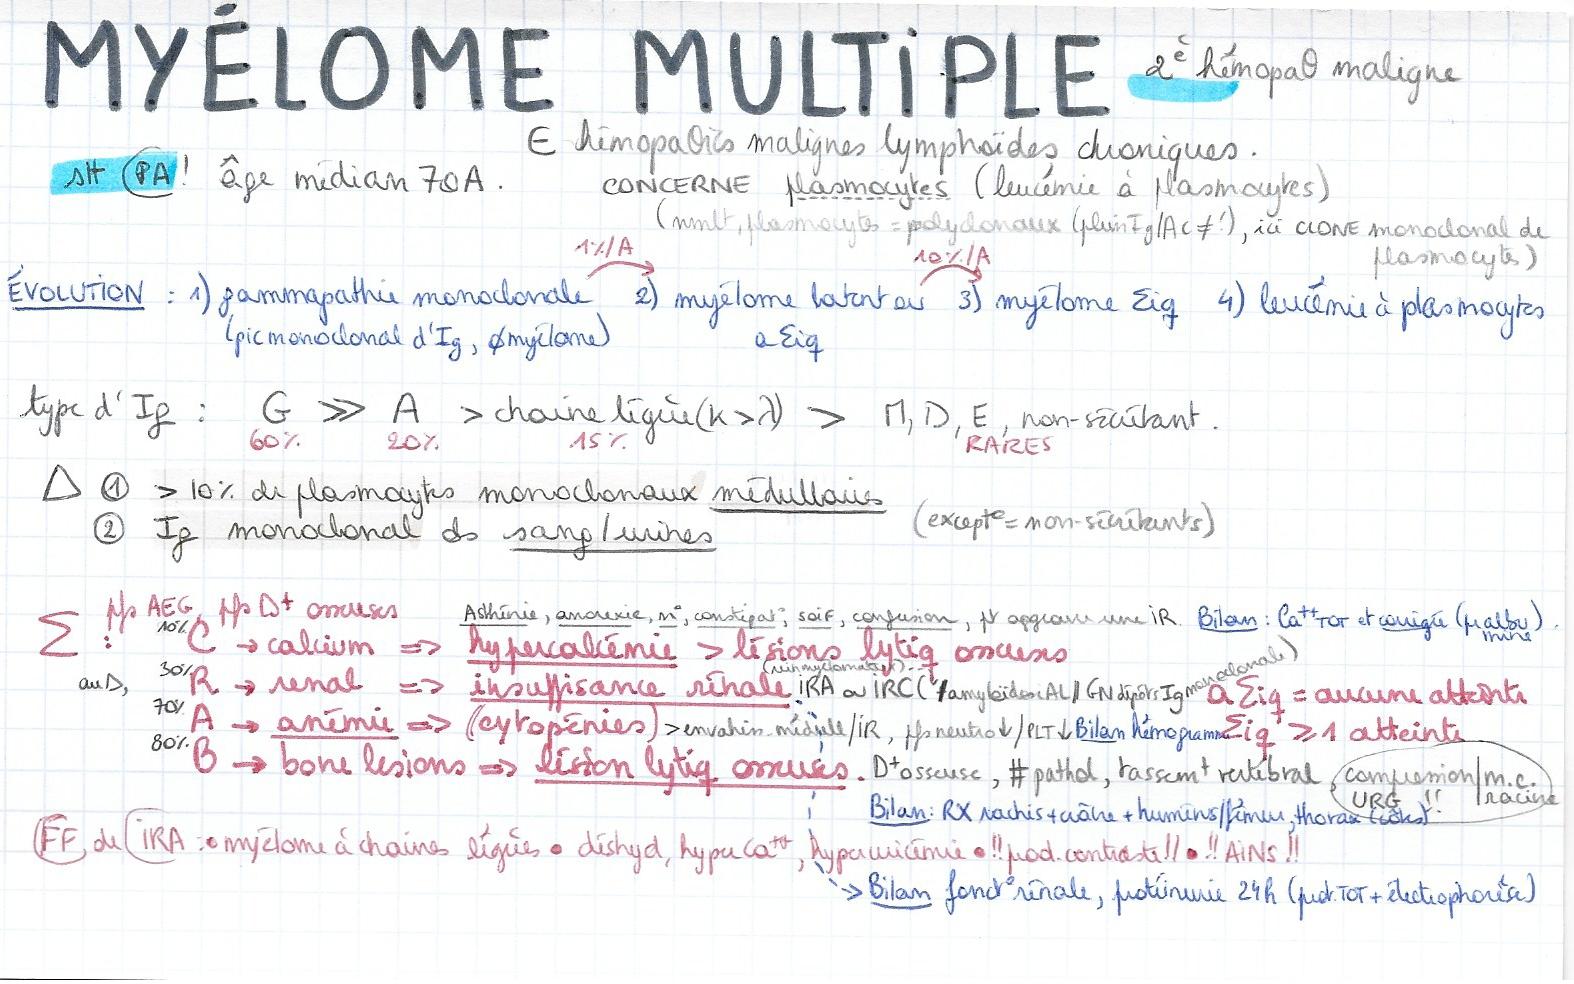 MYÉLOME MULTIPLE 2è hémopaθ maligne
∈ hémopaθies malignes lymphoïdes chroniques.
slt PA! âge médian 70A. CONCERNE plasmocytes (leucémie à plasmocytes)
(nmlt, plasmocytes = polyclonaux (plein Ig/Ac ≠!), ici CLONE monoclonal de
plasmocytes)
1%/A 10%/A
ÉVOLUTION : 1) gammapathie monoclonale 2) myélome latent ou 3) myélome Σiq 4) leucémie à plasmocytes
(pic monoclonal d'Ig, ∅ myélome) a Σiq
type d'Ig : G >> A > chaine légère (K > λ) > M, D, E, non-sécrétant.
60% 20% 15% RARES
Δ ① > 10% de plasmocytes monoclonaux médullaires
② Ig monoclonal ds sang/urines (except° = non-sécrétants)
Σ : pfs AEG, pfs D+ osseuses Asthénie, anorexie, n°, constipat°, soif, confusion, pt aggraver une IR. Bilan : Ca++ TOT et corrigée (pr albu
mine).
10% C → calcium => hypercalcémie > lésions lytiq osseuses
au D, 30% R → renal => insuffisance rénale IRA ou IRC (/amyloïdose AL/GN dépôts Ig monoclonale) a Σiq = aucune atteinte
70% A → anémie => (cytopénies) > envahiss. médull/IR, pfs neutro↓/PLT↓ Bilan hémogramme Σiq ≥ 1 atteinte
80% B → bone lesions => lésion lytiq osseuses. D+ osseuse, # pathol, tassemt vertébral, compression m.c./racine
URG !!
Bilan : RX rachis + crâne + humérus/fémur, thorax (côtes)
FF de IRA : • myélome à chaines légères • déshyd, hyper Ca++, hyperuricémie • !! prod. contraste !! • !! AINS !!
--> Bilan fonct° rénale, protéinurie 24h (prot. TOT + électrophorèse)